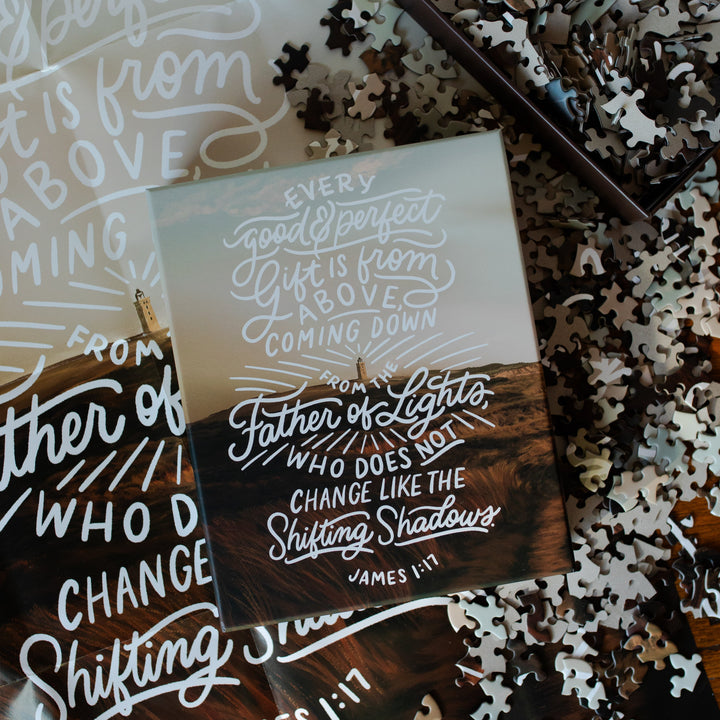 EVERY
good & perfect
Gift IS from
ABOVE,
COMING DOWN
FROM THE
Father of Lights,
WHO DOES NOT
CHANGE LIKE THE
Shifting Shadows.
JAMES 1:17
good & perfect
IS from
ABOVE,
COMING
FROM
of
WHO D
CHANGE
Shifting
1:17